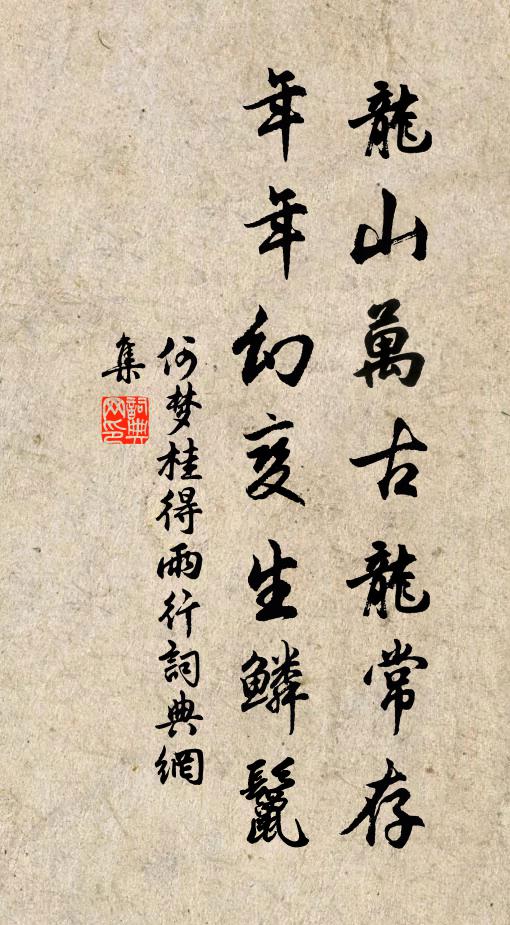 龍山萬古龍常存
年年幻变生鱗鬣
何梦桂得雨行詞典網
集
詞典網印